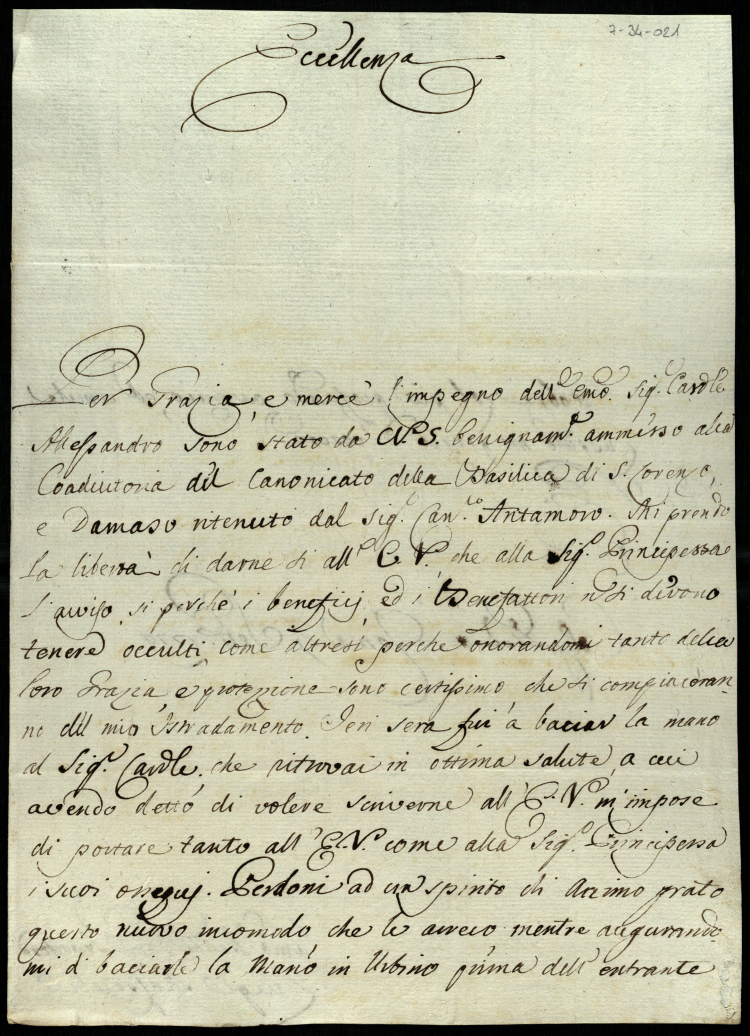 7-34-021
Eccellenza
Per Grazia, e mercè l'impegno dell'Emo. Sig.r Cardle
Alessandro sono stato da N.S. benignam.e ammesso alla
Coadiutoria del Canonicato della Basilica di S. Lorenzo,
e Damaso ritenuto dal Sig.r Can.co Antamoro. Mi prendo
la libertà di darne sì all'E.V. che alla Sig.ra Principessa
l'avviso, sì perchè i beneficij ed i Benefattori n si devono
tenere occulti come altresì perche onorandomi tanto della
loro Grazia e protezione sono certissimo che si compiaceran-
no del mio Istradamento. Jeri sera fui à baciar la mano
al Sig.r Cardle, che ritrovai in ottima salute, a cui
avendo detto di volere scriverne all'E.V. m'impose
di portare tanto all'E.V. come alla Sig.ra Principessa
i suoi ossequj. Perdoni ad un spirito di Animo grato
questo nuovo incomodo che le arreco mentre augurando-
mi di baciarle la Mano in Urbino prima dell'entrante